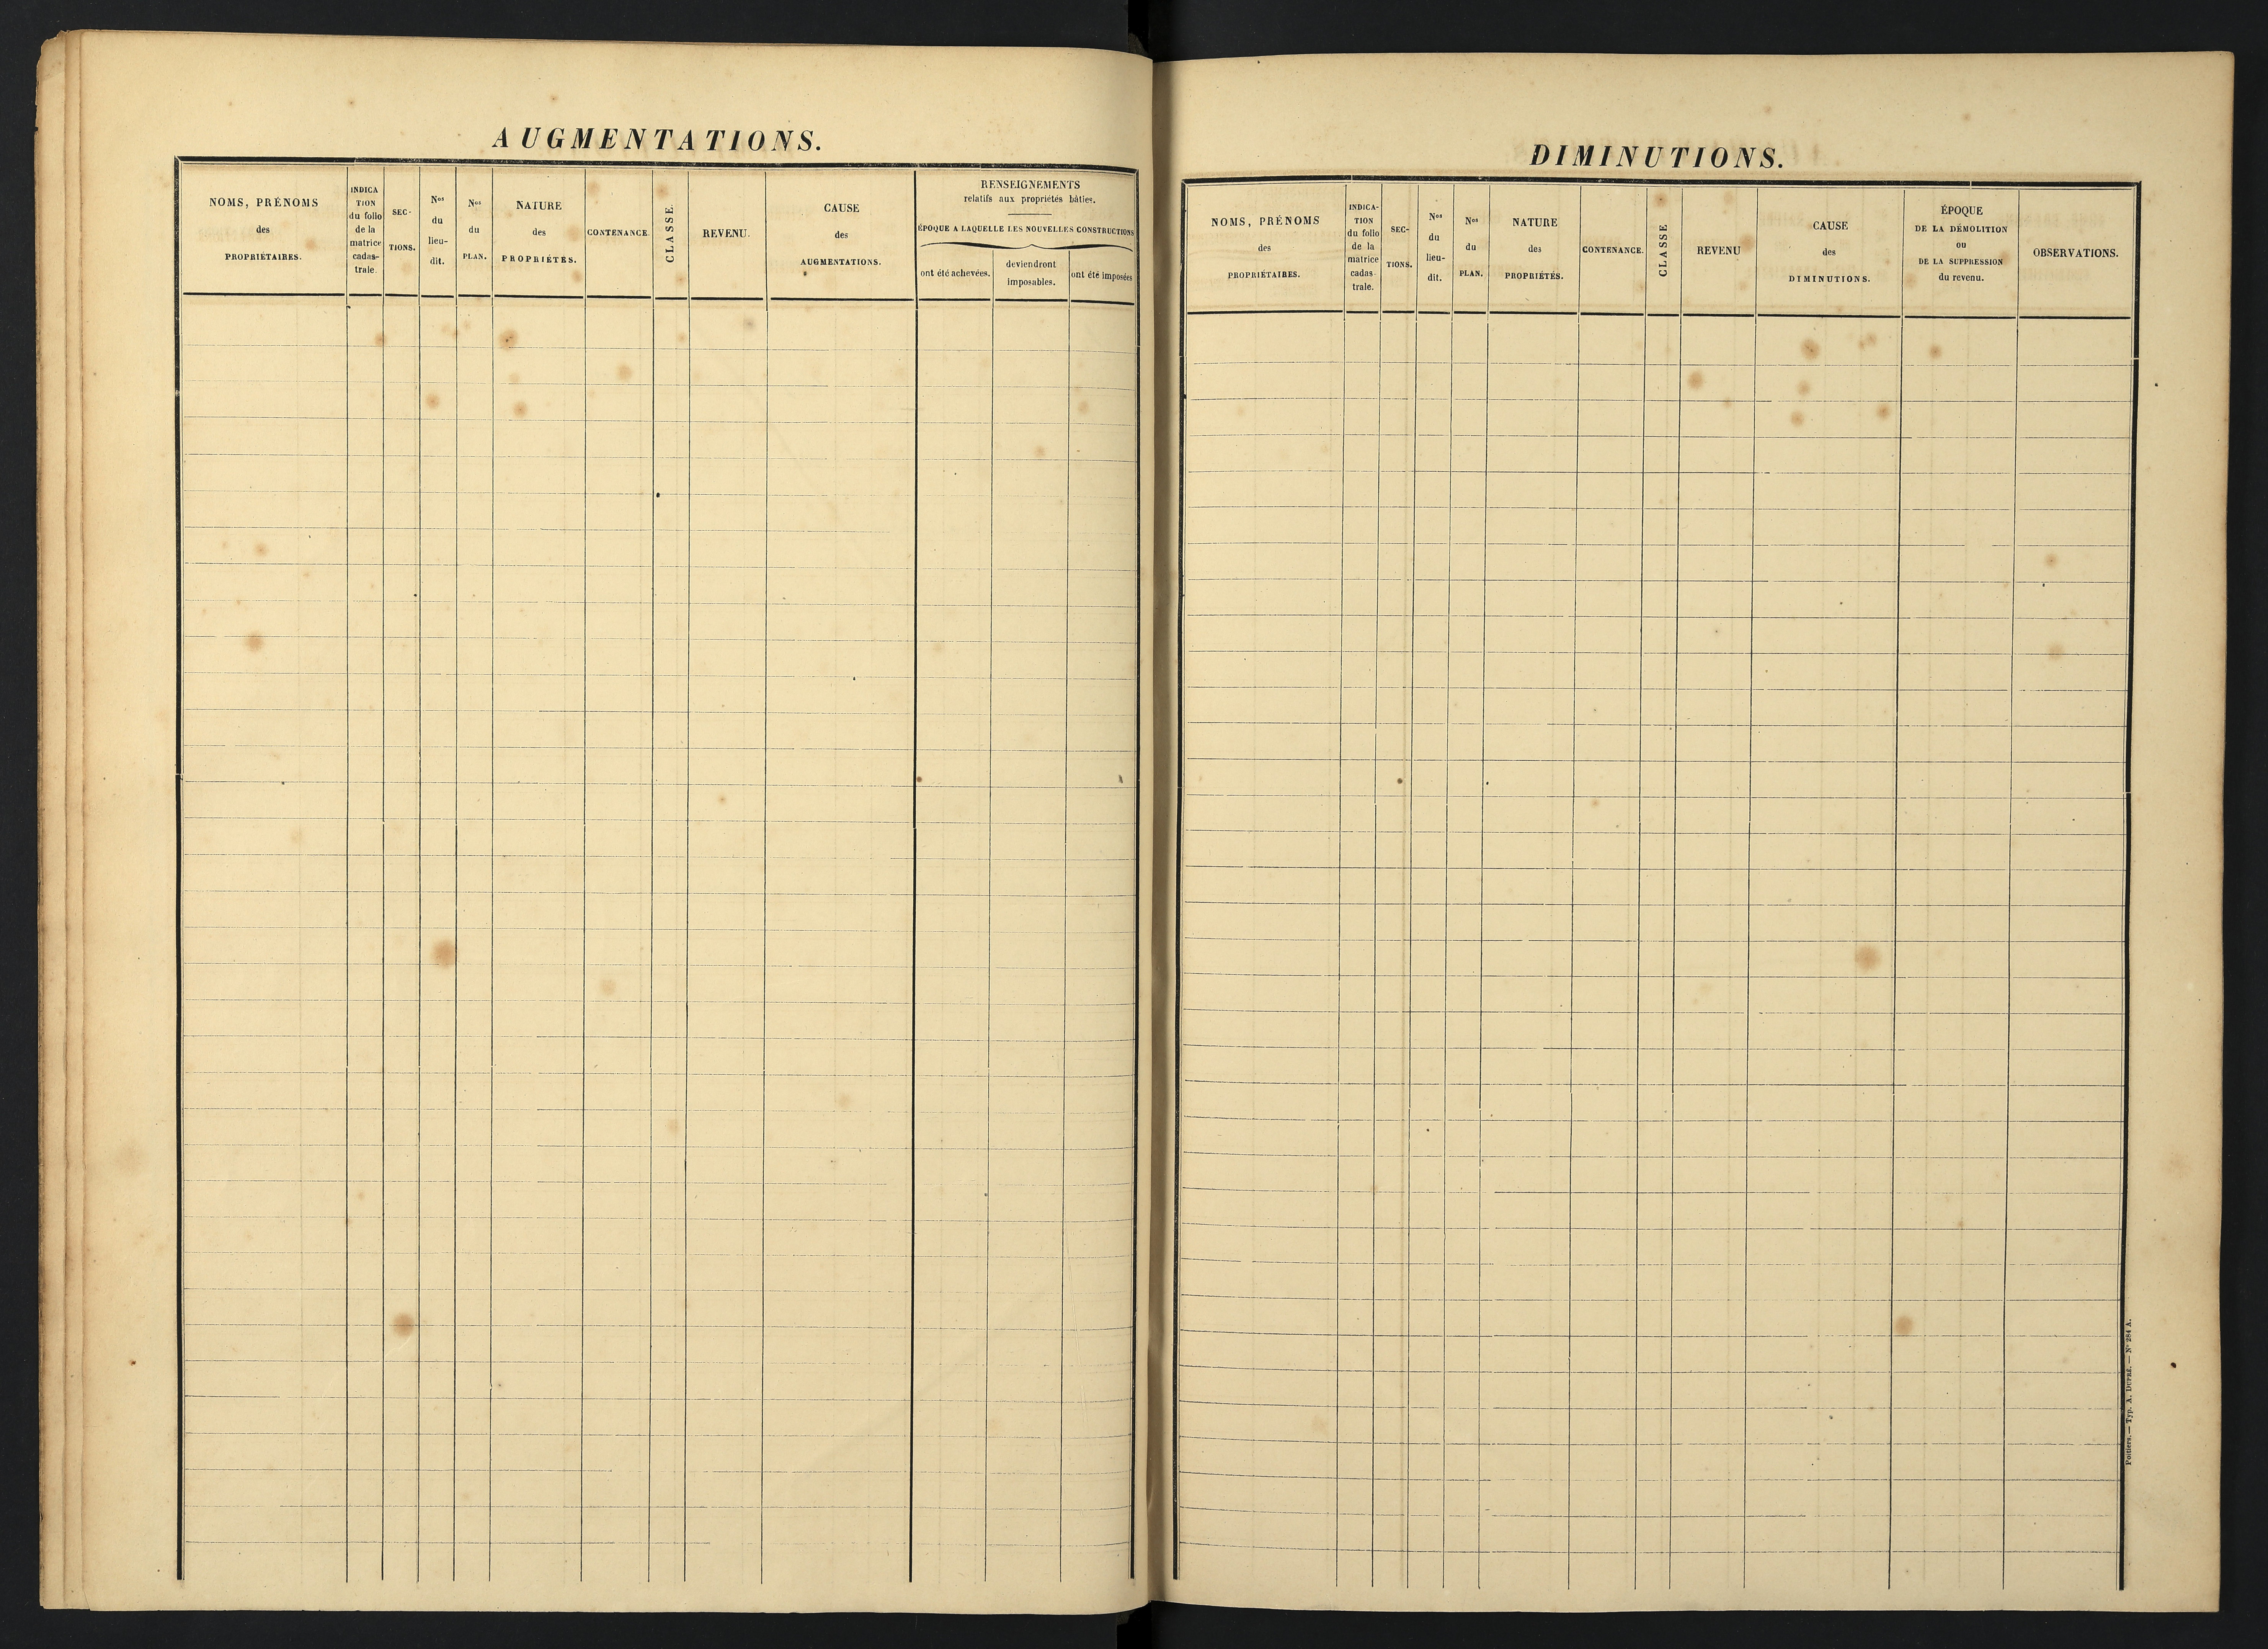 AUGMENTATIONS.
NOMS, PRÉNOMS
des
PROPRIÉTAIRES.
INDICA
TION
du folio
de la
matrice
cadas-
trale.
SEC-
TIONS.
Nos
du
lieu-
dit.
Nos
du
PLAN.
NATURE
des
PROPRIÉTÉS.
CONTENANCE.
CLASSE.
REVENU.
CAUSE
des
AUGMENTATIONS.
RENSEIGNEMENTS
relatifs aux propriétés bâties.
ÉPOQUE A LAQUELLE LES NOUVELLES CONSTRUCTIONS
ont été achevées.
deviendront
imposables.
ont été imposées
DIMINUTIONS.
NOMS, PRÉNOMS
des
PROPRIÉTAIRES.
INDICA-
TION
du folio
de la
matrice
cadas-
trale.
SEC-
TIONS.
Nos
du
lieu-
dit.
Nos
du
PLAN.
NATURE
des
PROPRIÉTÉS.
CONTENANCE.
CLASSE
REVENU
CAUSE
des
DIMINUTIONS.
ÉPOQUE
DE LA DÉMOLITION
OU
DE LA SUPPRESSION
du revenu.
OBSERVATIONS.
Poitiers. — Typ. A. DUPRÉ. — N° 284 A.